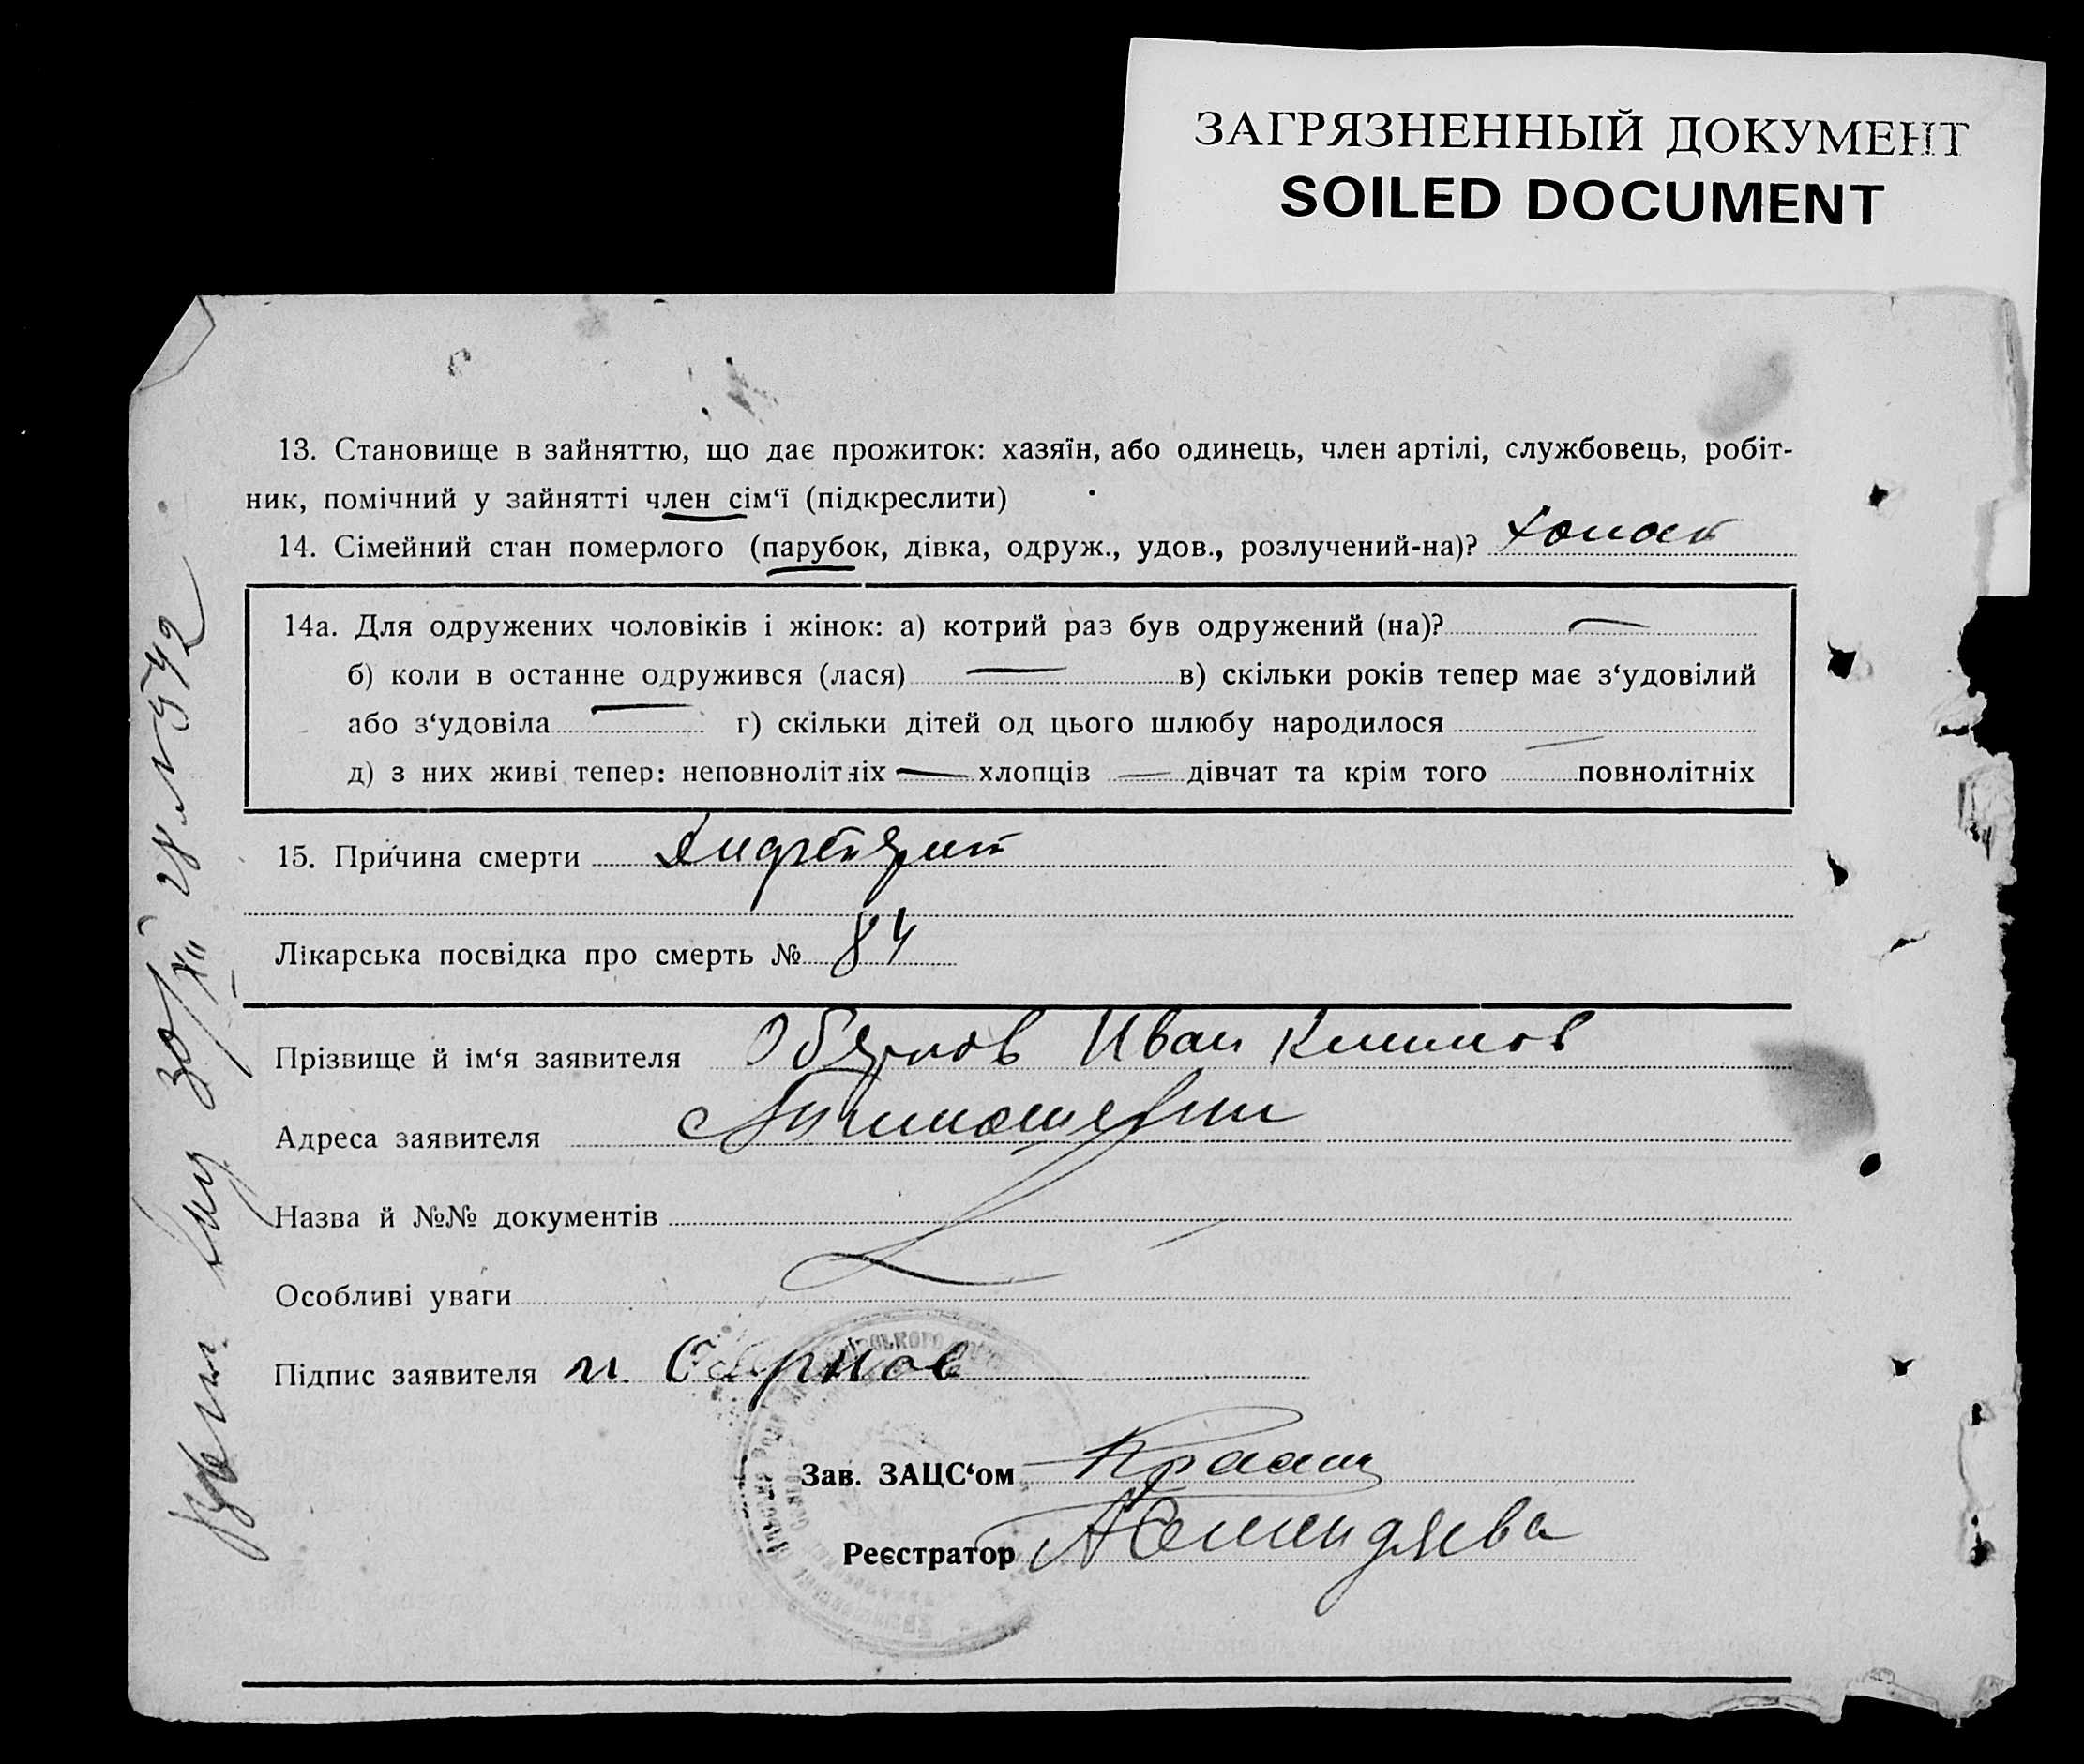 ЗАГРЯЗНЕННЫЙ ДОКУМЕНТ
SOILED DOCUMENT
13. Становище в зайняттю, що дає прожиток: хазяїн, або одинець, член артілі, службовець, робіт-
ник, помічний у зайнятті член сім‘ї (підкреслити)
14. Сімейний стан померлого (парубок, дівка, одруж., удов., розлучений-на)? холост
14а. Для одружених чоловіків і жінок: а) котрий раз був одружений (на)? —
б) коли в останне одружився (лася) — в) скільки років тепер має з‘удовілий
або з‘удовіла — г) скільки дітей од цього шлюбу народилося —
д) з них живі тепер: неповнолітніх — хлопців — дівчат та крім того повнолітніх
15. Причина смерти Дифтерит
Лікарська посвідка про смерть № 84
Прізвище й ім‘я заявителя Иван Климов
Адреса заявителя
Назва й №№ документів
Особливі уваги
Підпис заявителя
Зав. ЗАЦС‘ом
Реєстратор
30/XII